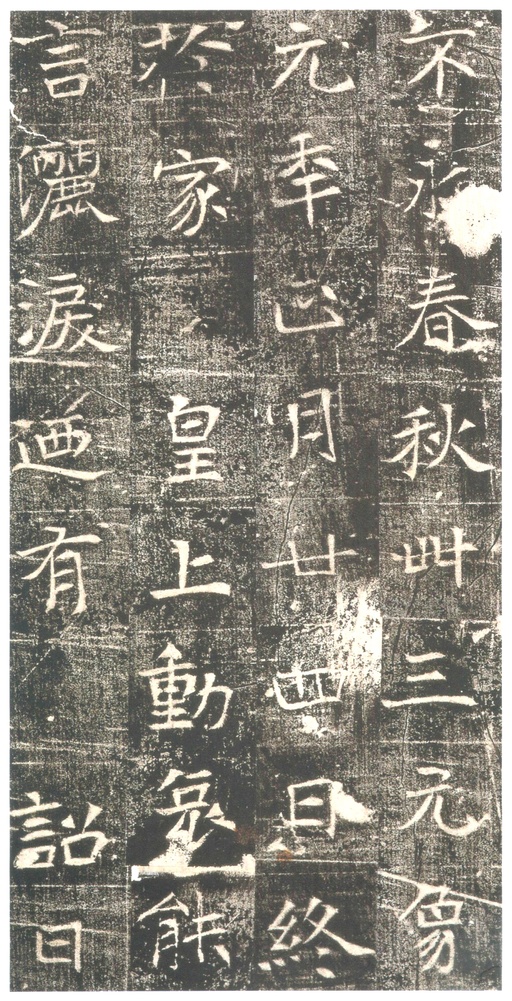 不永春秋卌三元象
元年正月廿四日終
於家 皇上動哀能
言灑淚迺有 詔曰